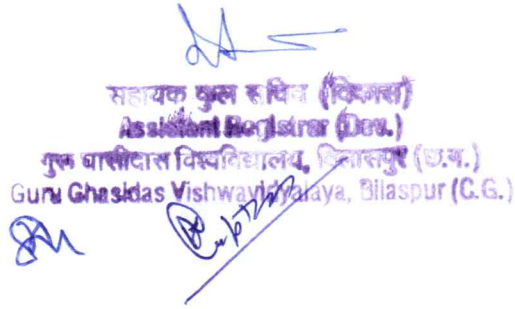 सहायक कुल सचिव (विकास)
Assistant Registrar (Dev.)
गुरू घासीदास विश्वविद्यालय, बिलासपुर (छ.ग.)
Guru Ghasidas Vishwavidyalaya, Bilaspur (C.G.)